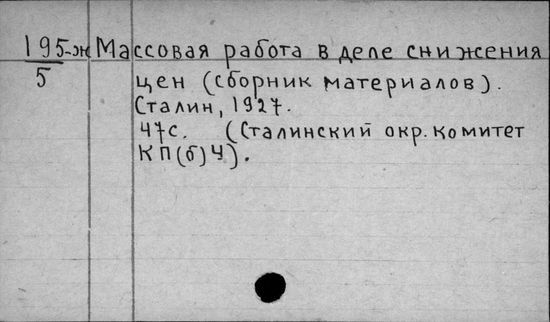 195-ж Массовая работа в деле снижения
5 цен (сборник материалов).
Сталин, 1927.
47с. (Сталинский окр. комитет
КП(б)У).